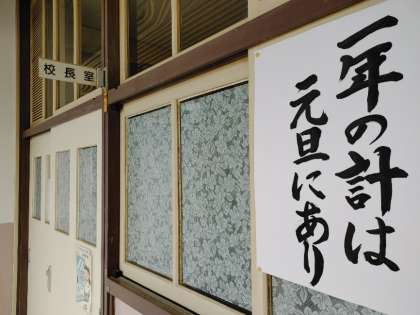 校長室
一年の計は
元旦にあり